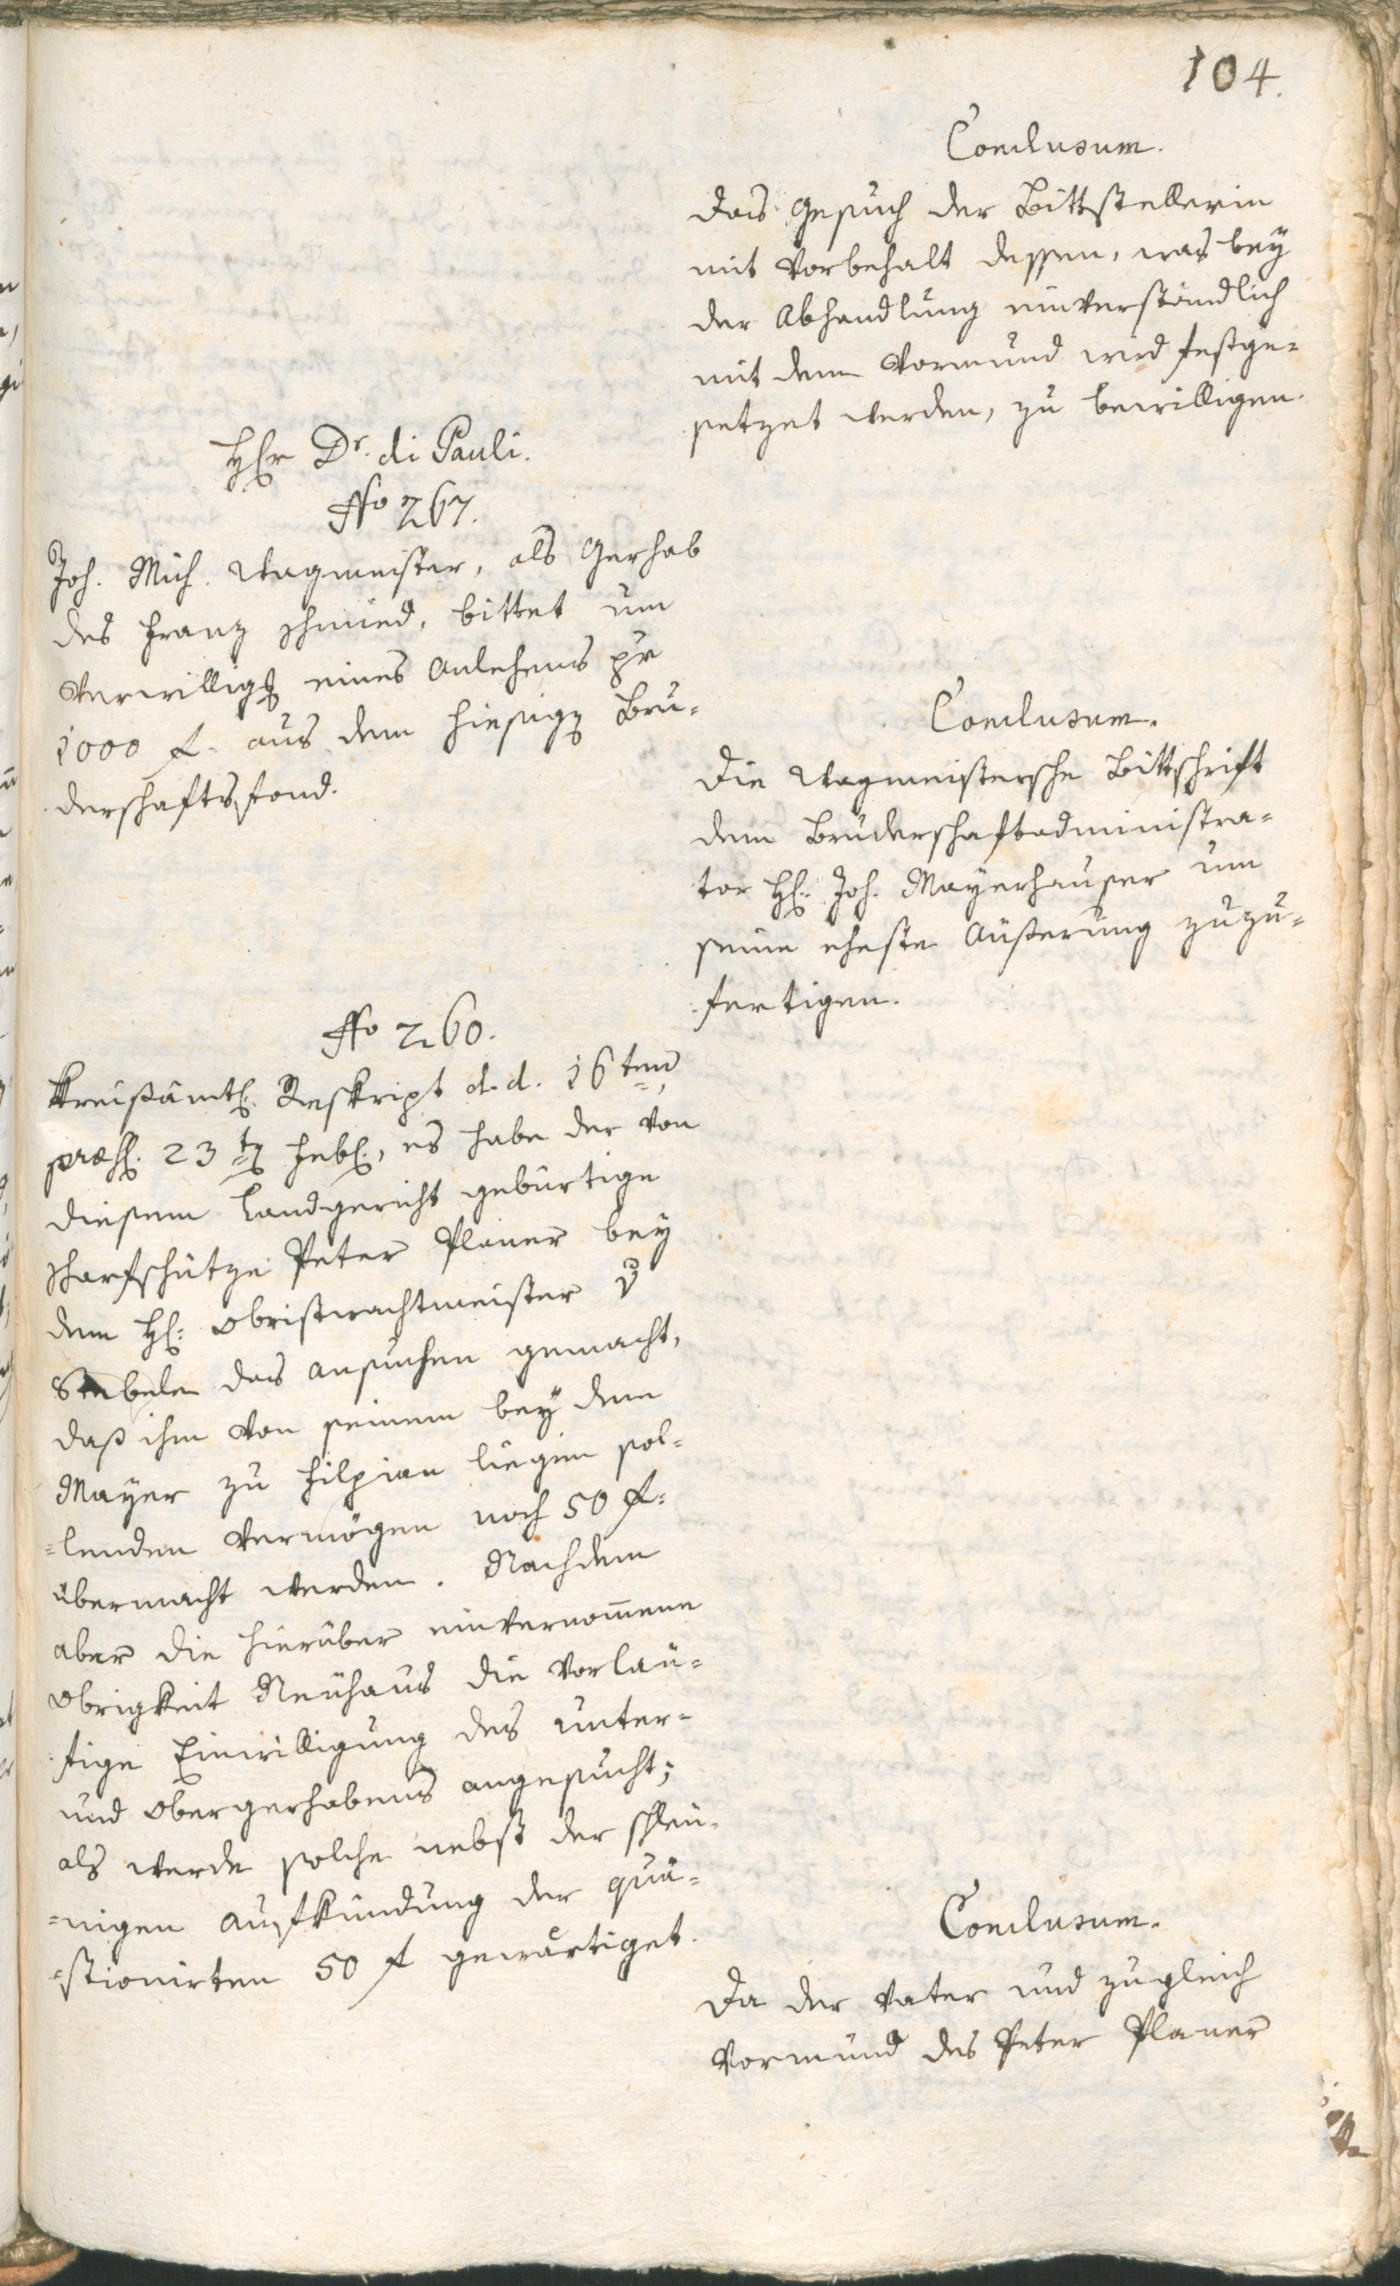 104.
Conclusum.
Das Gesuch der Bittstellerin
mit Vorbehalt dessen, was bey
der Abhandlung einverständlich
mit dem Vormund wird festge-
setzet werden, zu bewilligen.
Hr Dr. di Pauli.
No 267.
Joh. Mich. Wagmeister, als Gerhab
des Franz Schmied, bittet um
Verwilligg eines Anlehens pr
1000 f. aus dem hiesigen Bru-
derschaftsfond.
Conclusum.
Die Wagmeistersche Bittschrift
dem Bruderschaftadministra-
tor H. Joh. Mayerhauser um
seine eheste Äußerung zuzu-
fertigen.
No 260.
Kreißämtl. Reskript d. d. 16ten
præs. 23ten Feb., es habe der von
diesem Landgericht gebürtige
Scharfschütze Peter Planer bey
dem H: Obristwachtmeister v
Stabelen das Ansuchen gemacht,
daß ihm von seinem bey dem
Mayer zu Filpian liegen sol-
=lenden Vermögen noch 50 f.
übermacht werden. Nachdem
aber die hierüber einvernom̄ene
Obrigkeit Neuhaus die vorläu-
fige Einwilligung des Unter-
und Obergerhabens angesucht;
als werde solche nebst der schleu-
=nigen Aufkündung der quä-
=stionirten 50 f gewärtiget.
Conclusum.
Da der Vater und zugleich
Vormund des Peter Planer